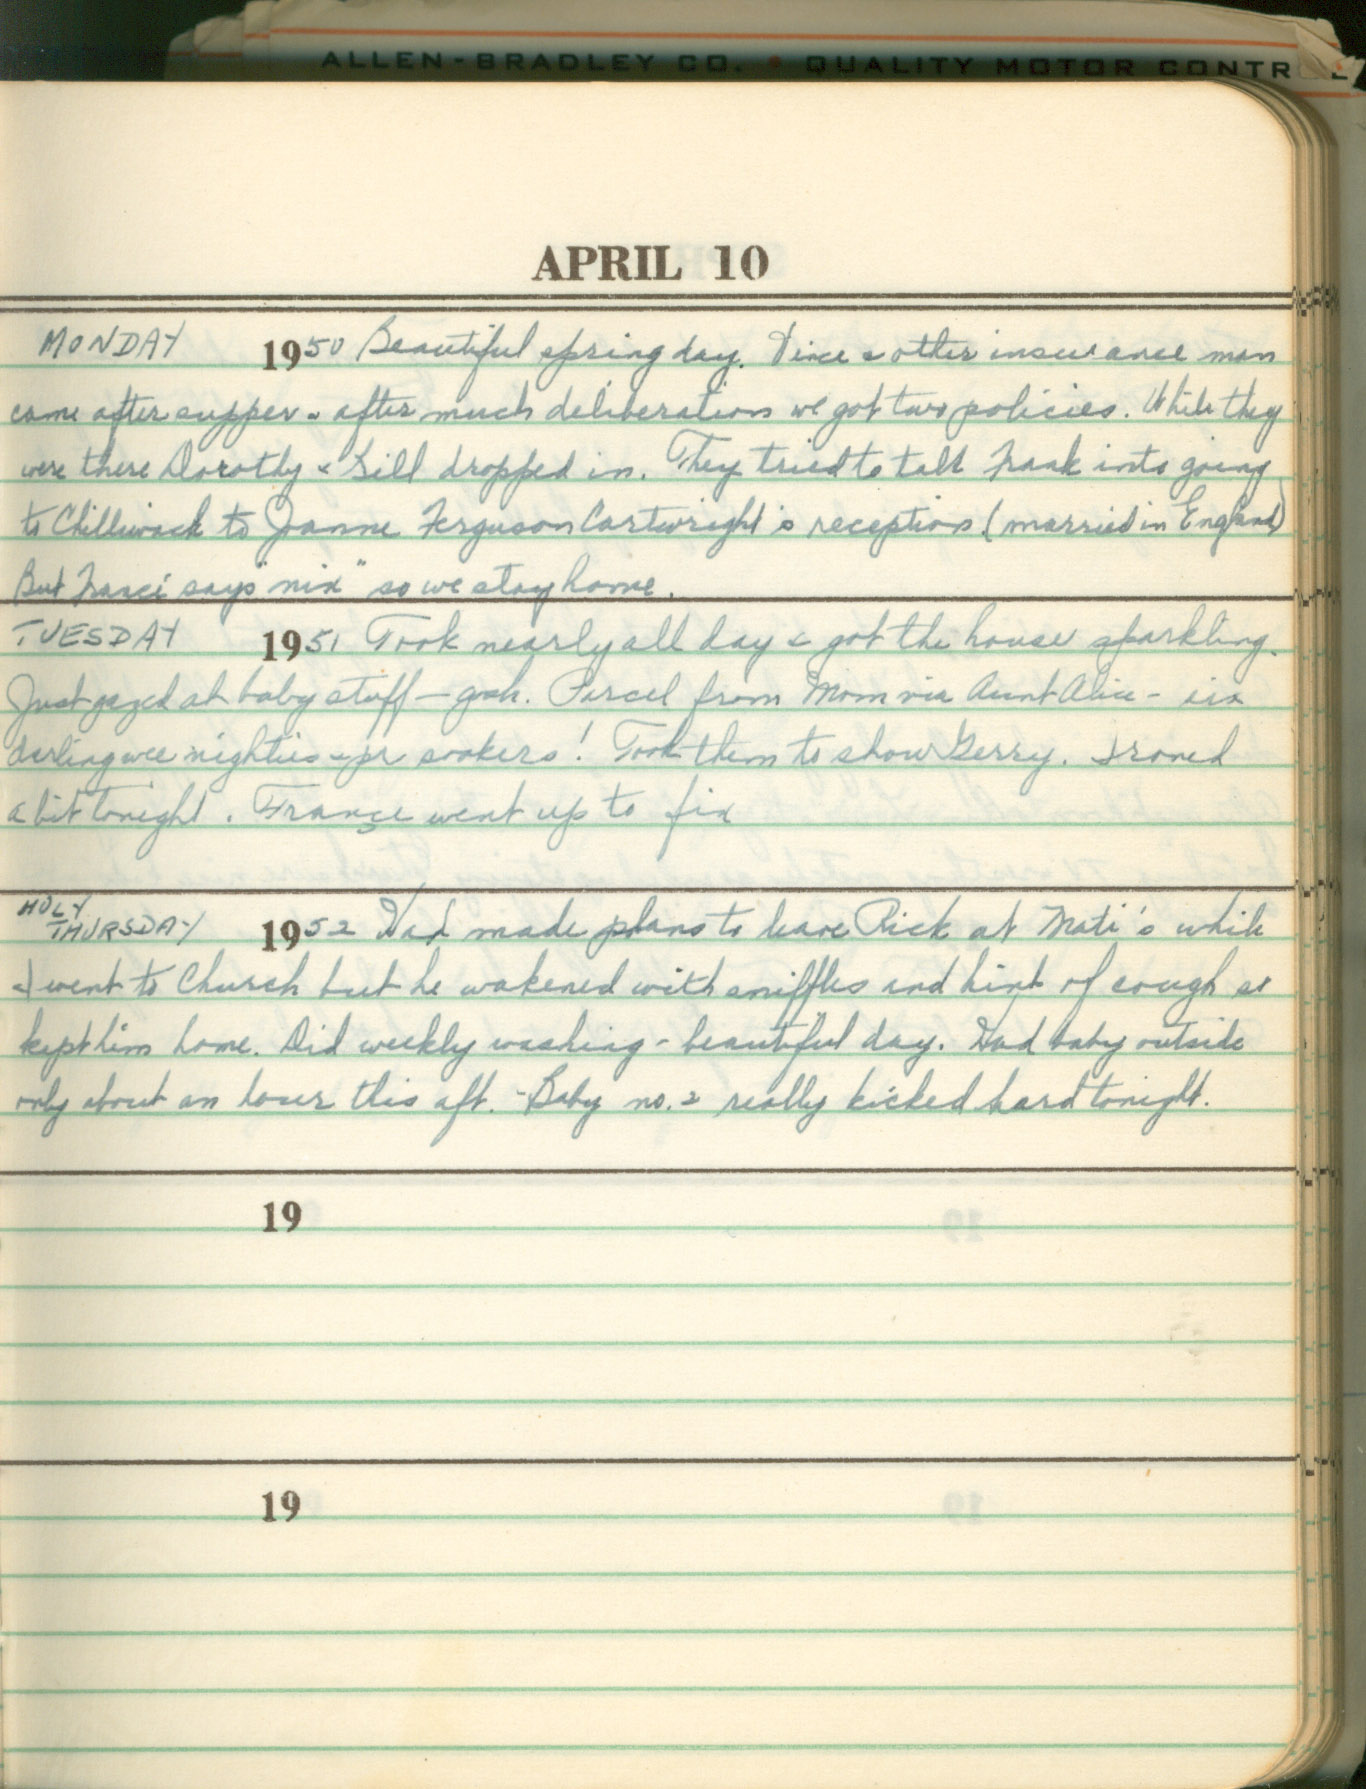 ALLEN-BRADLEY CO. • QUALITY MOTOR CONTROL
APRIL 10
MONDAY 1950 Beautiful spring day. Vince & other insurance man
came after supper & after much deliberation we got two policies. While they
were there Dorothy & Gill dropped in. They tried to talk Frank into going
to Chilliwack to Joanne Ferguson Cartwright's reception. (married in England)
But Franci says "nix" so we stay home.
TUESDAY 1951 Took nearly all day & got the house sparkling.
Just gazed at baby stuff - gosh. Parcel from Mom via Aunt Alice - six
darling wee nighties & pr soakers! Took them to show Gerry. Ironed
a bit tonight. France went up to fix
HOLY THURSDAY 1952 Had made plans to leave Rick at Mati's while
I went to Church but he wakened with sniffles and hint of cough so
kept him home. Did weekly washing - beautiful day. Had baby outside
only about an hour this aft. - Baby no. 2 really kicked hard tonight.
19
19